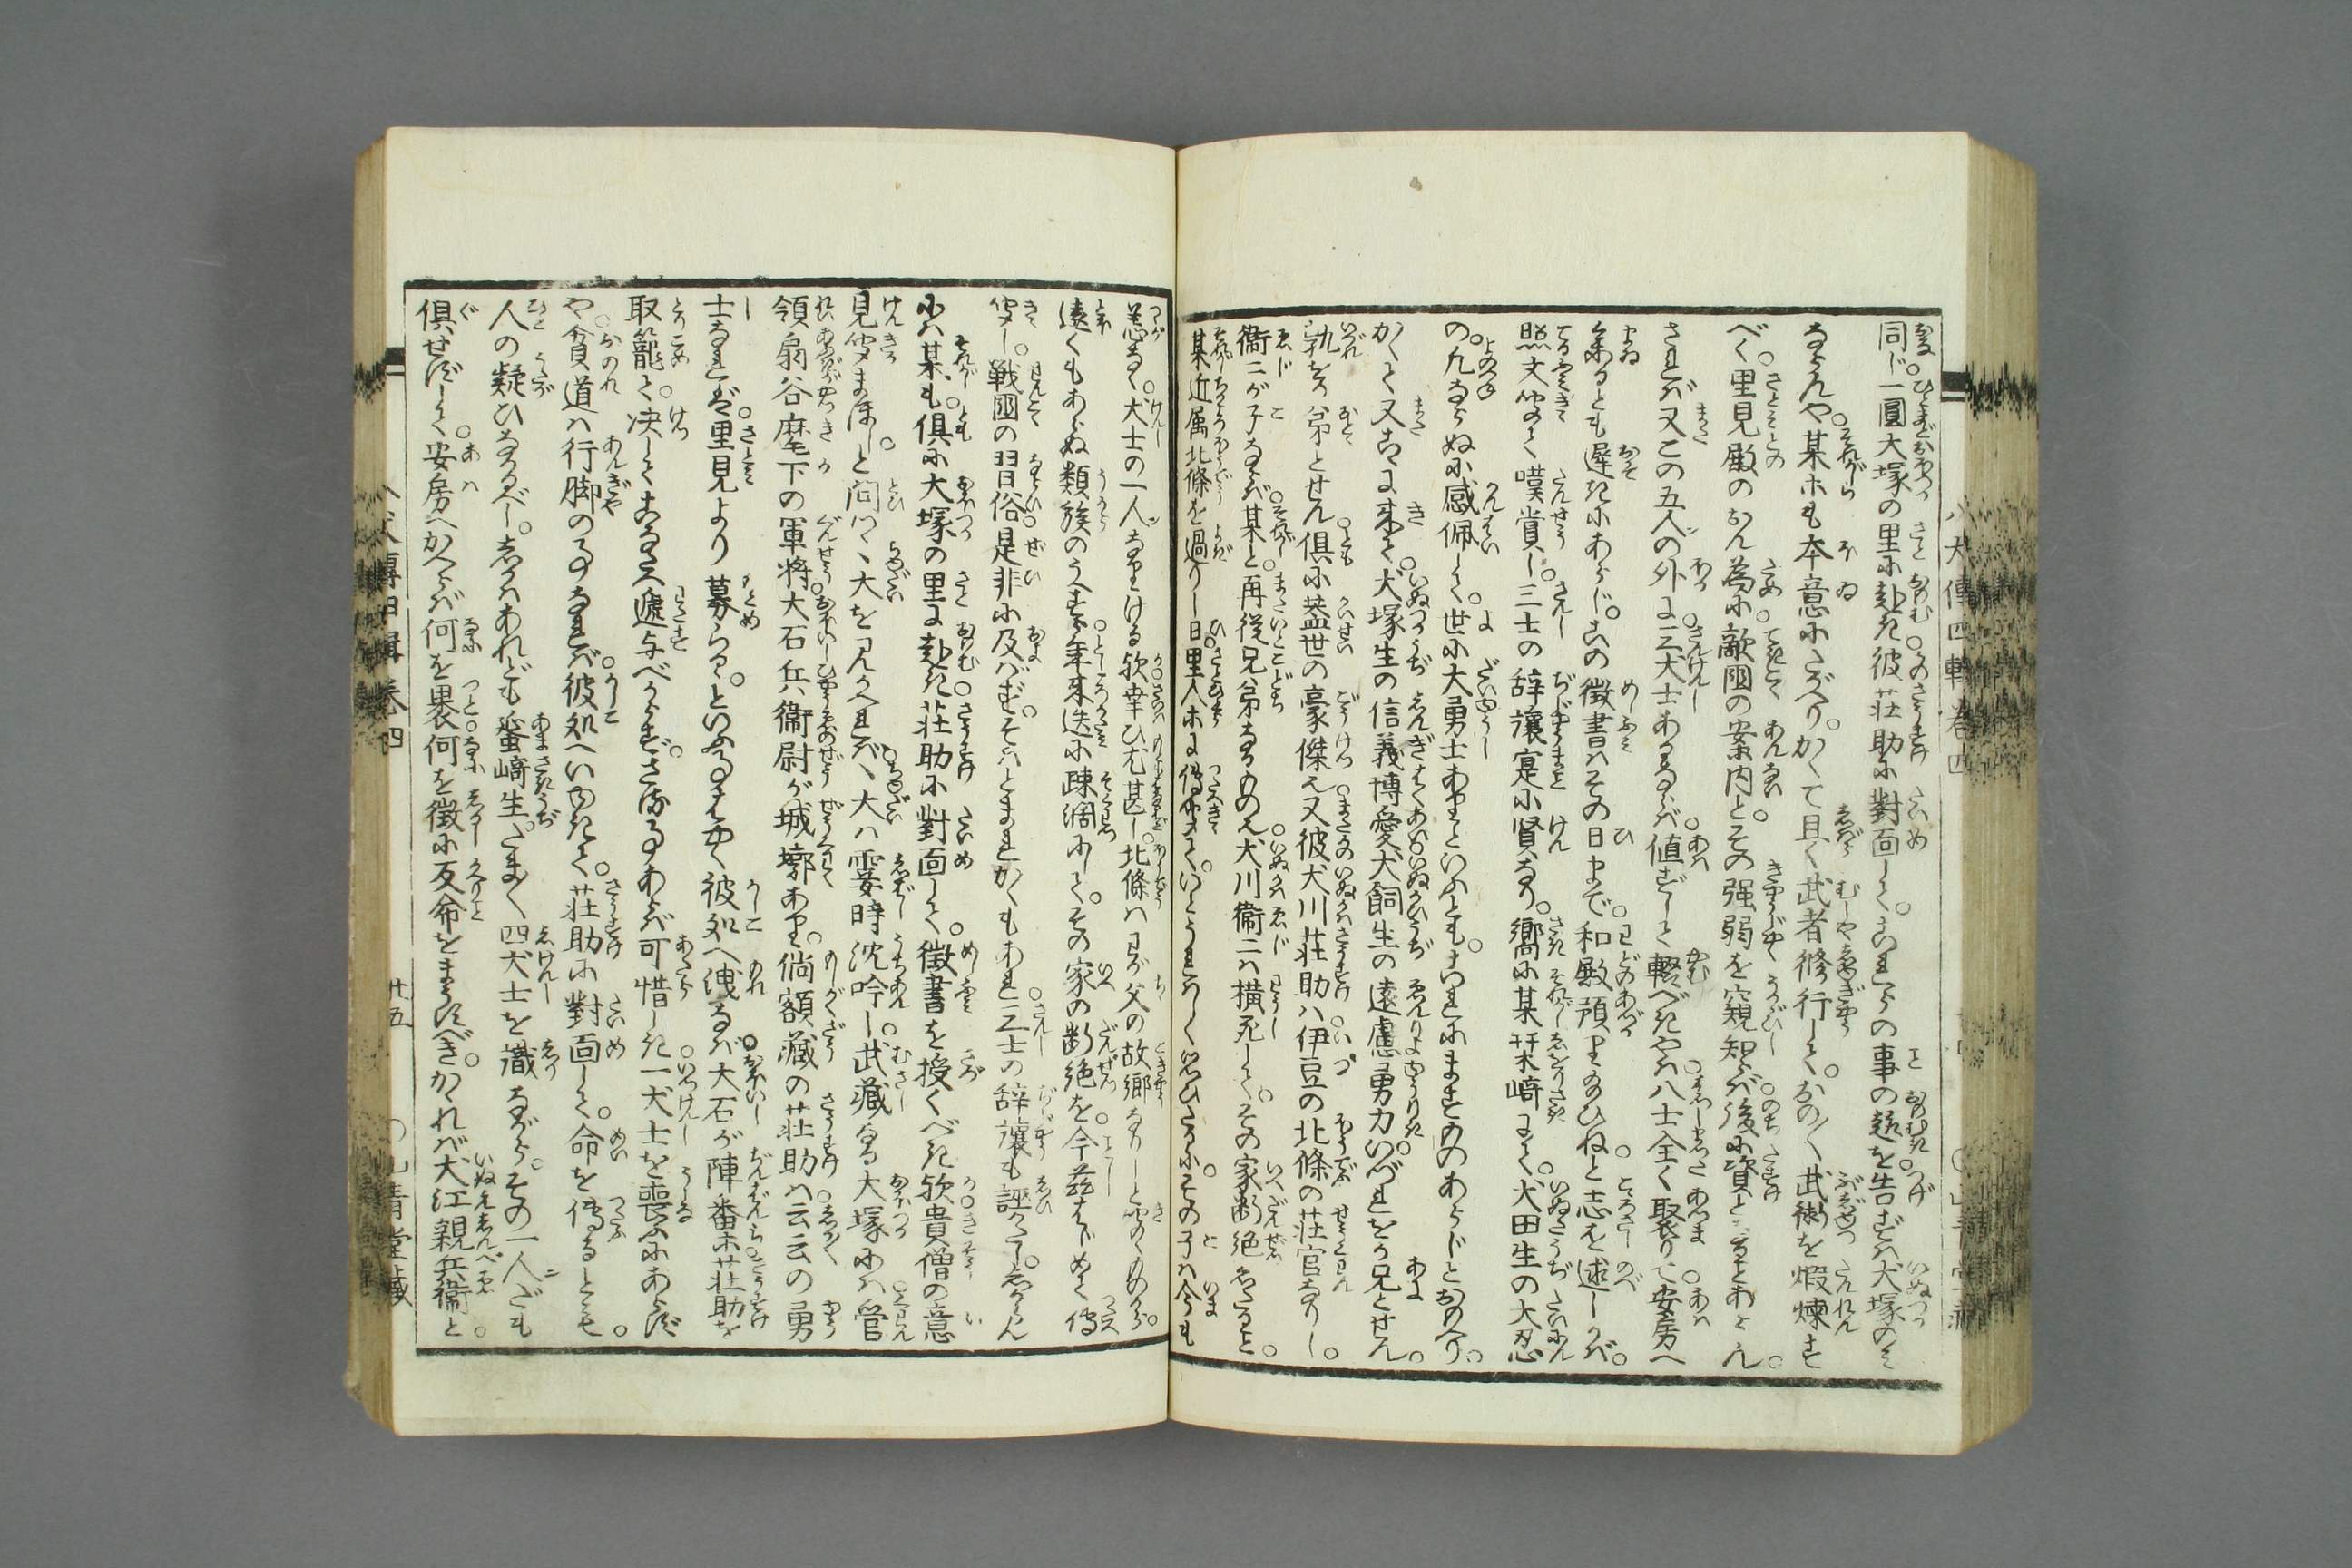 同じ一圓大塚の里に赴き彼荘助に對面して。これらの事の趣を告ずは犬塚のミ
ならんや某ホも本意にたがへり。かくて且く武者修行して。おの／＼武術を煅煉す
べく。里見殿のおん為に。敵國の案内と。その强弱を窺知らば後に資となることあらん
されば又この五人の外に三犬士あるならば値ずして輕べきやは八士全く聚りて安房へ
参るとも遲きにあらじ。この徴書はその日まで。和殿預りたひねと志を述しかば。
照文聞て嘆賞し。三士の辞讓寔に賢なり。嚮に某栞﨑にて。犬田生の大忍
の。凡ならぬに感佩して。世に大勇士ありといふとも。これにますものあらじとおもへり。
かくて又こゝに来て。犬塚生の信義博愛犬飼生の遠慮勇力。いづれを兄とせん
孰を弟とせん。倶に蓋世の豪傑也又彼犬川荘助ハ伊豆の北條の荘官なりし。
衞二が子ならば某と。再從兄弟なるもの也犬川衞二ハ横死して。その家断絶しぬると。
某近属北條を過りし日。里人ホに傳聞て。いとうれはしく思ひたるに。その子ハ今も
恙なく。犬士の一人なりける歟幸ひ尤甚し。北條ハわが父の故郷なりしと聞くものから。
遠くもあらぬ類族のうへを。年来迭に疎濶にして。その家の断絶を。今茲はじめて傳
聞し。戦國の習俗。是非に及ばず。そハとまれかくもあれ三士の辞讓も誣がたし。しからん
にハ某も。倶に大塚の里に赴き荘助に對面して。徴書を授くべき歟貴僧の意
見聞まほしと問へバ、大を見かへれば、大ハ霎時沈吟し。武藏なる大塚にハ管
領扇谷麾下の軍將大石兵衞尉が城墎あり。倘額藏の荘助ハ云云の勇
士なれど。里見より募らる。といふ事はやく彼処へ洩なば大石が陣番ホ荘助を
取籠て。决してこなたへ遞与べからず。さる事あらば可惜しき一犬士を喪ふにあらず
や。貧道ハ行脚の事なれば。彼処へいゆきて。荘助に對面して。命を傳るとも。
人の疑ひなかるべし。しかハあれども蜑﨑生。たま／＼四犬士を識ながら。その一人だも
倶せずして。安房へかへらば何を褁何を徴に反命をまうすべき。かゝれバ犬江親兵衞と。
八犬傳四輯巻四
八犬傳四輯巻四
廿五
〇山青堂藏